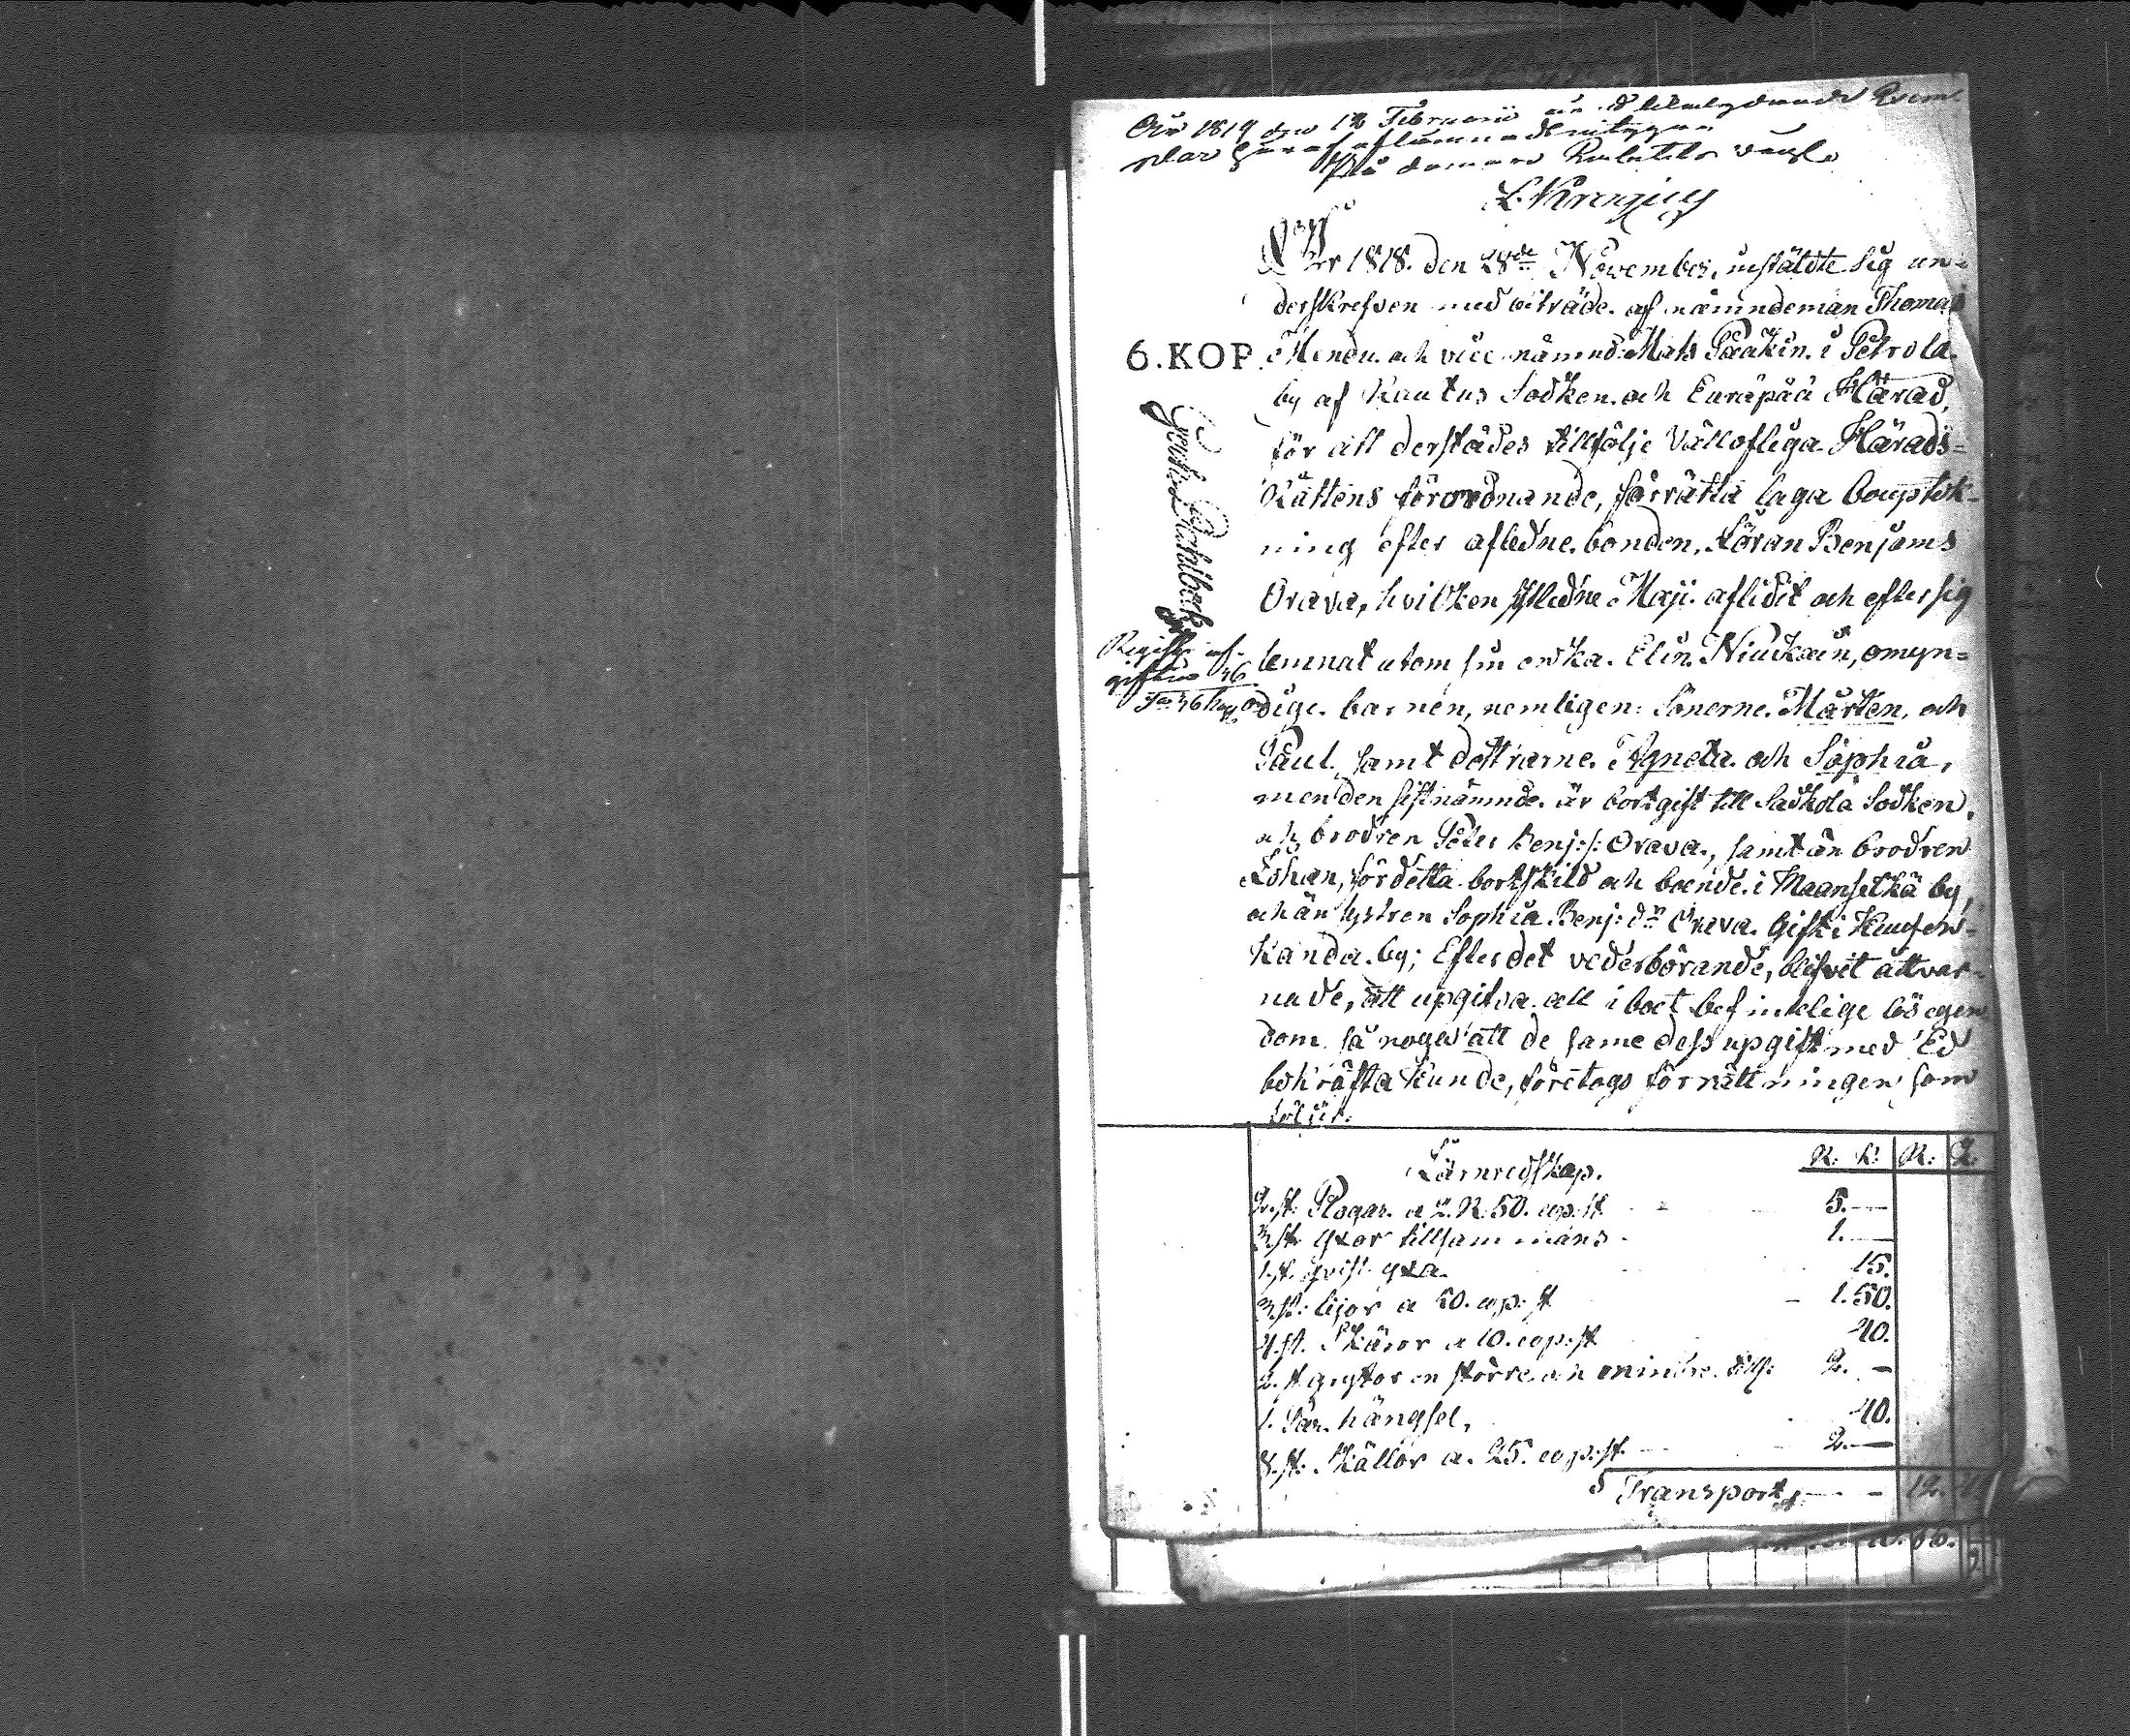 År 1819 den 18 Februarii är et likalydande Exem-
plar häraf aflämnadt intygar
På domare Embetets vägnar
År 1818. den 28de November, instälte sig un-
derskrefven med biträde af nämndeman Thomas
6.KOP. Hendu och vice nämnd: Mats Paakin i Petrola
by af Kautus Socken och Euräpää Härad,
för att derstädes tillfölje Vällofliga Härads-
Rättens förordnande, förrätta laga bouptek-
ning efter aflidne bonden, Jöran Benjams
Orava, hvilken sistledne Maji aflidit och efter sig
lemnat utom sin enka Elin Niuckain, omyn-
dige barnen, nemligen: Sönerne Mårten, och
Paul, samt döttrarne Agneta och Sophia,
men den sistnämnde är bortgift till Sackola Socken,
och brodren Peter Benj:s: Orava, samt än brodren
Johan, för detta bortskild och boende i Maanselkä by,
och än systren Sophia Benj: dr Orava gift i
kanda by; Efter det vederbörande, blifvit åtvar-
nade, att upgifva all i boet befintelige lösegen
dom så noga att de same dess upgift med Ed
bekräfta kunde, företogs förrättningen som
följer.
Järnredskap. R: K: R: K.
2. st: Plogar a 2. R 50. cop: st 5.—
3. st yxor tillsammans 1.—
1. st. qvist yxa 15.
3. st: lijor a 50. cop: st 1.50.
4. st. Skäror a 10. cop: st 40.
2. st grytor en större och en mindre tills: 2.—
1. Par hängsel, 40.
8. st: Skällor a 25. cop: st. 2.—
Transport 12.